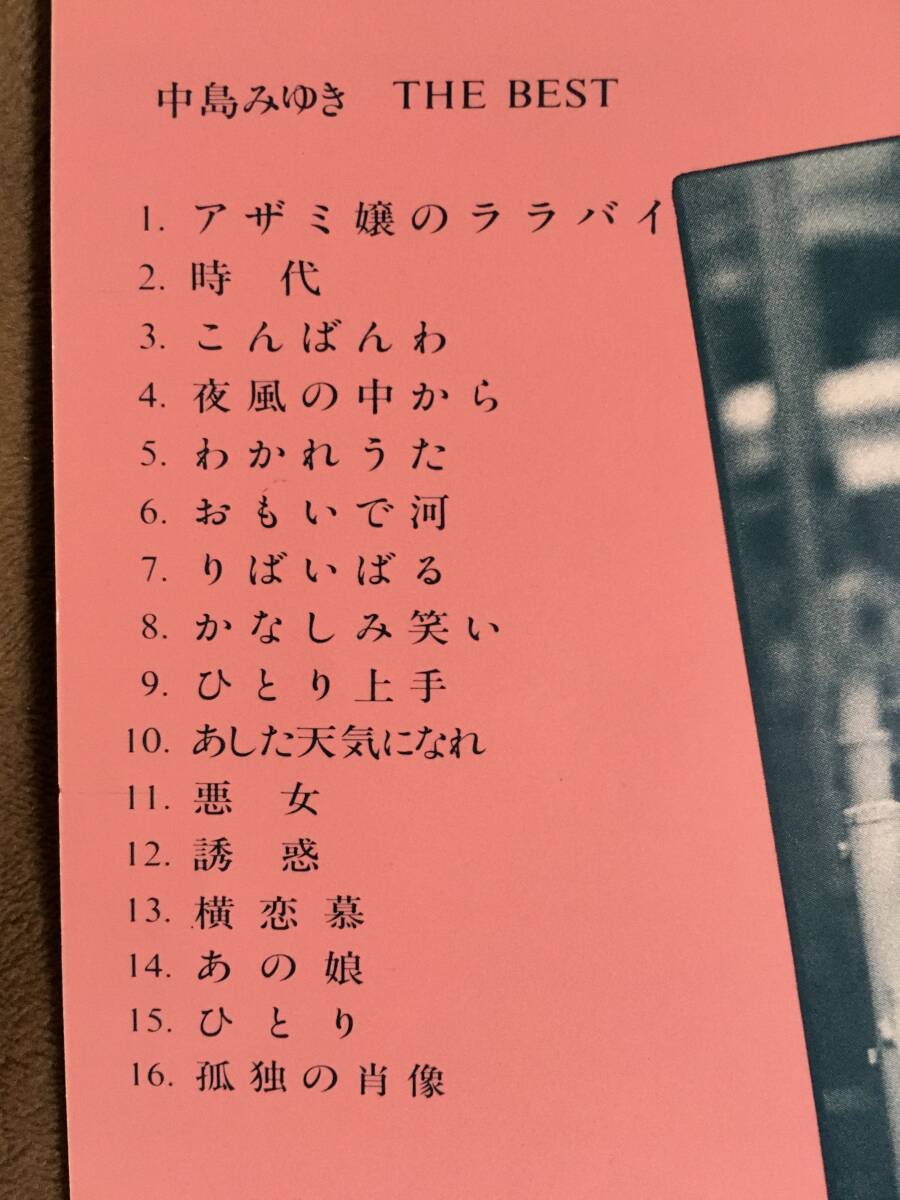 中島みゆき THE BEST
1. アザミ嬢のララバイ
2. 時代
3. こんばんわ
4. 夜風の中から
5. わかれうた
6. おもいで河
7. りばいばる
8. かなしみ笑い
9. ひとり上手
10. あした天気になれ
11. 悪女
12. 誘惑
13. 横恋慕
14. あの娘
15. ひとり
16. 孤独の肖像